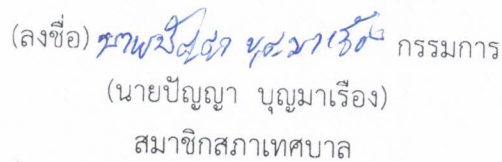 (ลงชื่อ) นายปัญญา บุญมาเรือง กรรมการ
(นายปัญญา บุญมาเรือง)
สมาชิกสภาเทศบาล